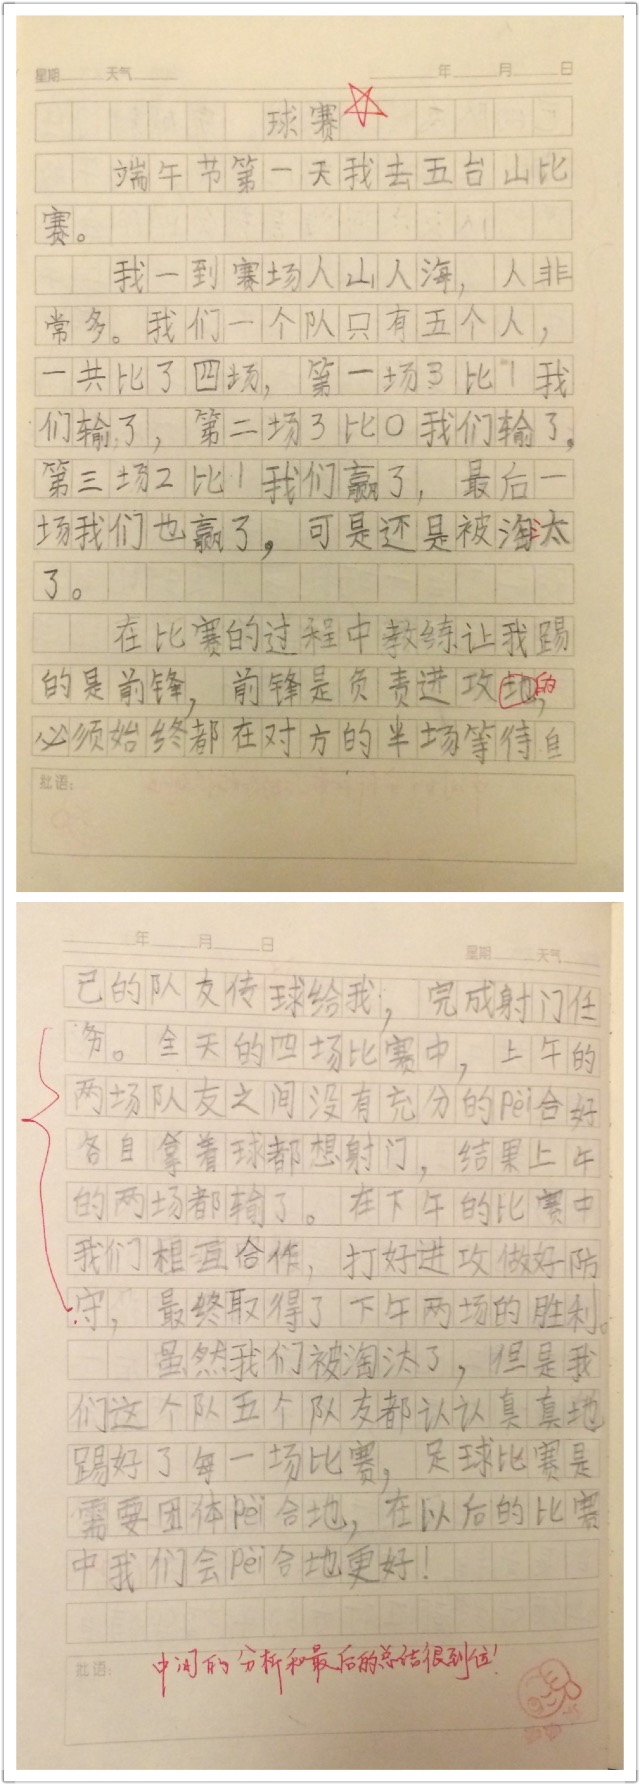 星期 天气 年 月 日
球赛
端午节第一天我去五台山比
赛。
我一到赛场人山人海，人非
常多。我们一个队只有五个人，
一共比了四场，第一场3比1我
们输了，第二场3比0我们输了。
第三场2比1我们赢了，最后一
场我们也赢了，可是还是被淘汰
了。
在比赛的过程中教练让我踢
的是前锋，前锋是负责进攻地的，
必须始终都在对方的半场等待自
批语：
年 月 日 星期 天气
己的队友传球给我，完成射门任
务。全天的四场比赛中，上午的
两场队友之间没有充分的pèi合好
各自拿着球都想射门，结果上午
的两场都输了。在下午的比赛中
我们相互合作，打好进攻做好防
守，最终取得了下午两场的胜利。
虽然我们被淘汰了，但是我
们这个队五个队友都认认真真地
踢好了每一场比赛，足球比赛是
需要团体pèi合地，在以后的比赛
中我们会pèi合地更好！
批语：
中间的分析和最后的总结很到位！